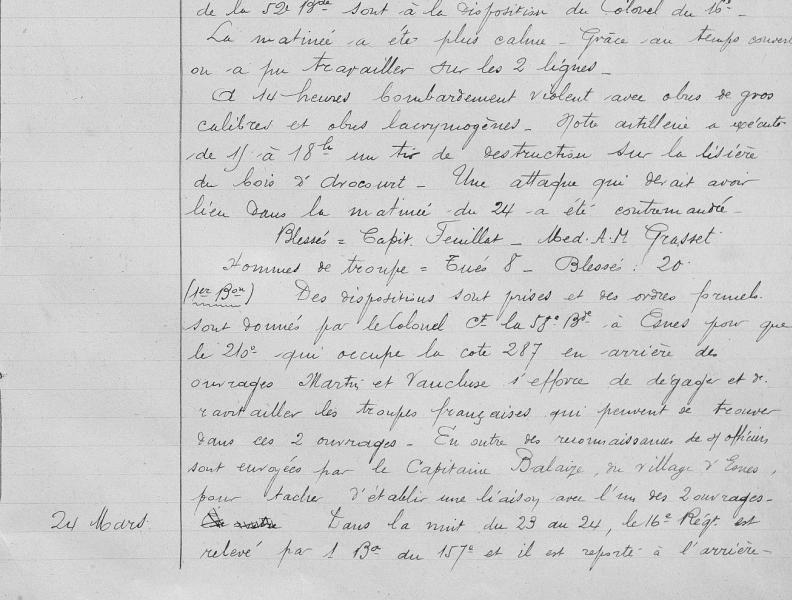 de la 52e Bde sont à la disposition du Colonel du 16e -
La matinée a été plus calme - Grâce au temps couvert
on a pu travailler sur les 2 lignes -
A 14 heures bombardement violent avec obus de gros
calibres et obus lacrymogènes - Notre artillerie a exécuté
de 15 à 18h un tir de destruction sur la lisière
du bois d'Avocourt - Une attaque qui devait avoir
lieu dans la matinée du 24 a été contremandée -
Blessés = Capit. Feuillat - Med. A.M Grasset
Hommes de troupe = Tués 8 - Blessés : 20
(1er Bon) Des dispositions sont prises et des ordres formels
sont donnés par le Colonel Ct la 58e Bde à Esnes pour que
le 210e qui occupe la cote 287 en arrière des
ouvrages Martin et Vaucluse s'efforce de dégager et de
ravitailler les troupes françaises qui peuvent se trouver
dans ces 2 ouvrages - En outre des reconnaissances de officiers
sont envoyées par le Capitaine Balaize, du village d'Esnes,
pour tacher d'établir une liaison avec l'un des 2 ouvrages -
24 Mars Dans la nuit du 23 au 24, le 16e Régt. est
relevé par 1 Bon du 157e et il est reporté à l'arrière -